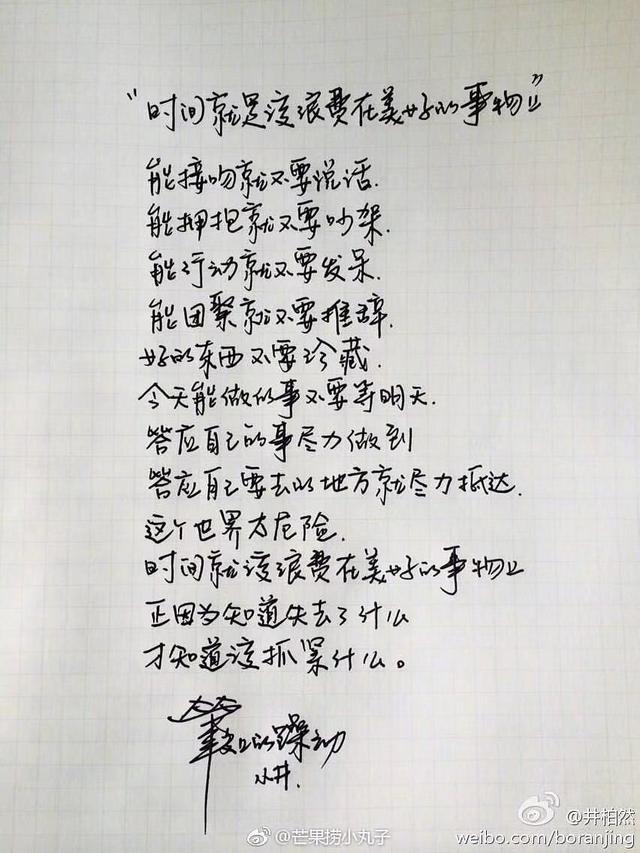 “时间就是该浪费在美好的事物上”
能接吻就不要说话.
能拥抱就不要吵架.
能行动就不要发呆.
能团聚就不要推辞.
好的东西不要珍藏.
今天能做的事不要等明天.
答应自己的事尽力做到
答应自己要去的地方就尽力抵达.
这个世界太危险.
时间就该浪费在美好的事物上
正因为知道失去了什么
才知道该抓紧什么。
的躁动
小井.
@芒果捞小丸子
@井柏然
weibo.com/boranjing